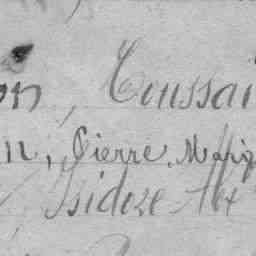 on, Toussai
n, Pierre
Isidore Alex